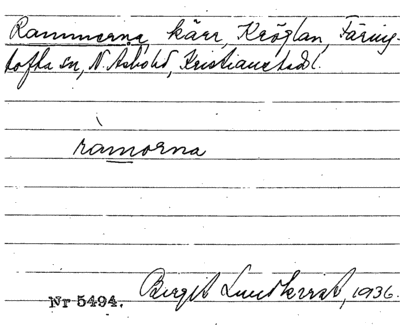 Rammorna, kärr, Kröglan, Färing-
tofta sn, N. Åsbo hd, Kristianstads l.
ràmorna
Nr 5494.
Birgit Lundkvist, 1936.